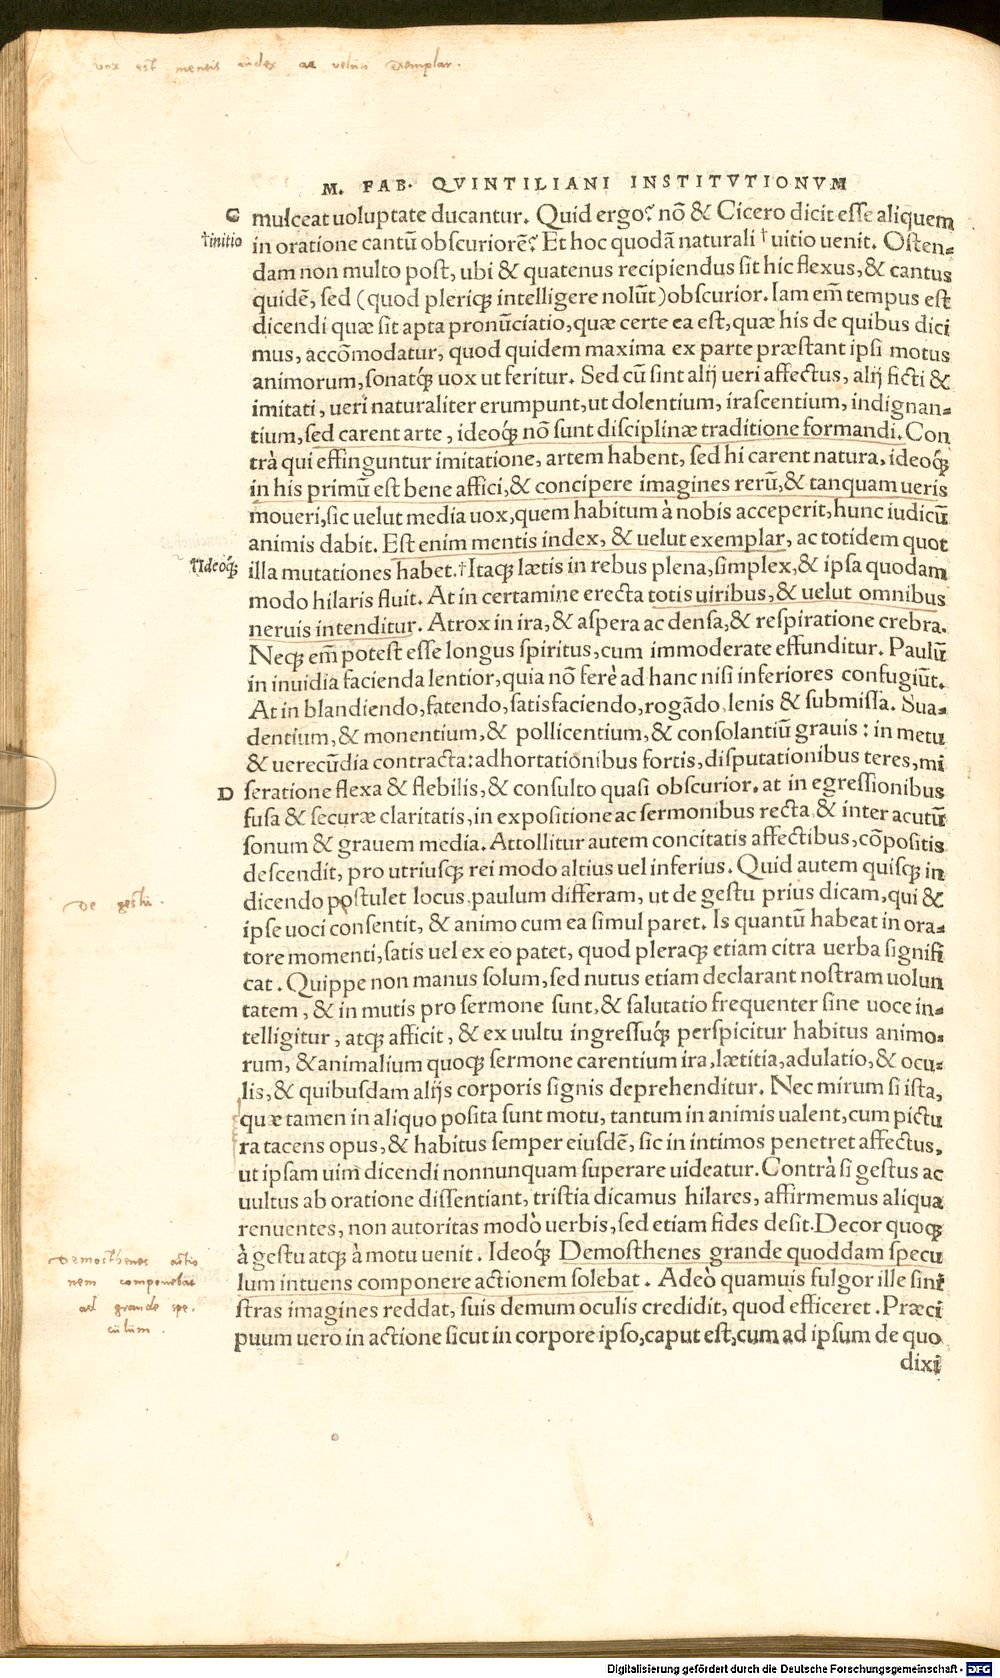 vox est mentis index ac velut exemplar.
M. FAB. QVINTILIANI INSTITVTIONVM
C mulceat uoluptate ducantur. Quid ergo? nō & Cicero dicit esse aliquem
†initio in oratione cantū obscuriorē? Et hoc quodā naturali † uitio uenit. Osten=
dam non multo post, ubi & quatenus recipiendus sit hic flexus, & cantus
quidē, sed (quod pleriq; intelligere nolūt) obscurior. Iam em̄ tempus est
dicendi quæ sit apta pronūciatio, quæ certe ea est, quæ his de quibus dici
mus, accōmodatur, quod quidem maxima ex parte præstant ipsi motus
animorum, sonatq́; uox ut feritur. Sed cū sint alij ueri affectus, alij ficti &
imitati, ueri naturaliter erumpunt, ut dolentium, irascentium, indignan=
tium, sed carent arte, ideoq́; nō sunt disciplinæ traditione formandi. Con
trà qui effinguntur imitatione, artem habent, sed hi carent natura, ideoq́;
in his primū est bene affici, & concipere imagines rerū, & tanquam ueris
moueri, sic uelut media uox, quem habitum à nobis acceperit, hunc iudicū
animis dabit. Est enim mentis index, & uelut exemplar, ac totidem quot
†Ideoq́; illa mutationes habet. † Itaq; lætis in rebus plena, simplex, & ipsa quodam
modo hilaris fluit. At in certamine erecta totis uiribus, & uelut omnibus
neruis intenditur. Atrox in ira, & aspera ac densa, & respiratione crebra.
Neq; em̄ potest esse longus spiritus, cum immoderate effunditur. Paulū
in inuidia facienda lentior, quia nō ferè ad hanc nisi inferiores confugiūt.
At in blandiendo, fatendo, satisfaciendo, rogādo, lenis & submissa. Sua=
dentium, & monentium, & pollicentium, & consolantiū grauis: in metu
& uerecūdia contracta: adhortationibus fortis, disputationibus teres, mi
D seratione flexa & flebilis, & consulto quasi obscurior. at in egressionibus
fusa & securæ claritatis, in expositione ac sermonibus recta, & inter acutū
sonum & grauem media. Attollitur autem concitatis affectibus, cōpositis
descendit, pro utriusq; rei modo altius uel inferius. Quid autem quisq; in
De gestu. dicendo postulet locus, paulum differam, ut de gestu prius dicam, qui &
ipse uoci consentit, & animo cum ea simul paret. Is quantū habeat in ora=
tore momenti, satis uel ex eo patet, quod pleraq; etiam citra uerba signifi
cat. Quippe non manus solum, sed nutus etiam declarant nostram uolun
tatem, & in mutis pro sermone sunt, & salutatio frequenter sine uoce in=
telligitur, atq; afficit, & ex uultu ingressuq́; perspicitur habitus animo=
rum, & animalium quoq; sermone carentium ira, lætitia, adulatio, & ocu=
lis, & quibusdam alijs corporis signis deprehenditur. Nec mirum si ista,
quæ tamen in aliquo posita sunt motu, tantum in animis ualent, cum pictu
ra tacens opus, & habitus semper eiusdē, sic in intimos penetret affectus,
ut ipsam uim dicendi nonnunquam superare uideatur. Contrà si gestus ac
uultus ab oratione dissentiant, tristia dicamus hilares, affirmemus aliqua
renuentes, non autoritas modò uerbis, sed etiam fides desit. Decor quoq;
à gestu atq; à motu uenit. Ideoq́; Demosthenes grande quoddam specu
lum intuens componere actionem solebat. Adeò quamuis fulgor ille sini
stras imagines reddat, suis demum oculis credidit, quod efficeret. Præci
puum uero in actione sicut in corpore ipso, caput est, cum ad ipsum de quo
dixi
Demosthenes actio
nem componebat
ad grande spe.
cūlum.
Digitalisierung gefördert durch die Deutsche Forschungsgemeinschaft - DFG